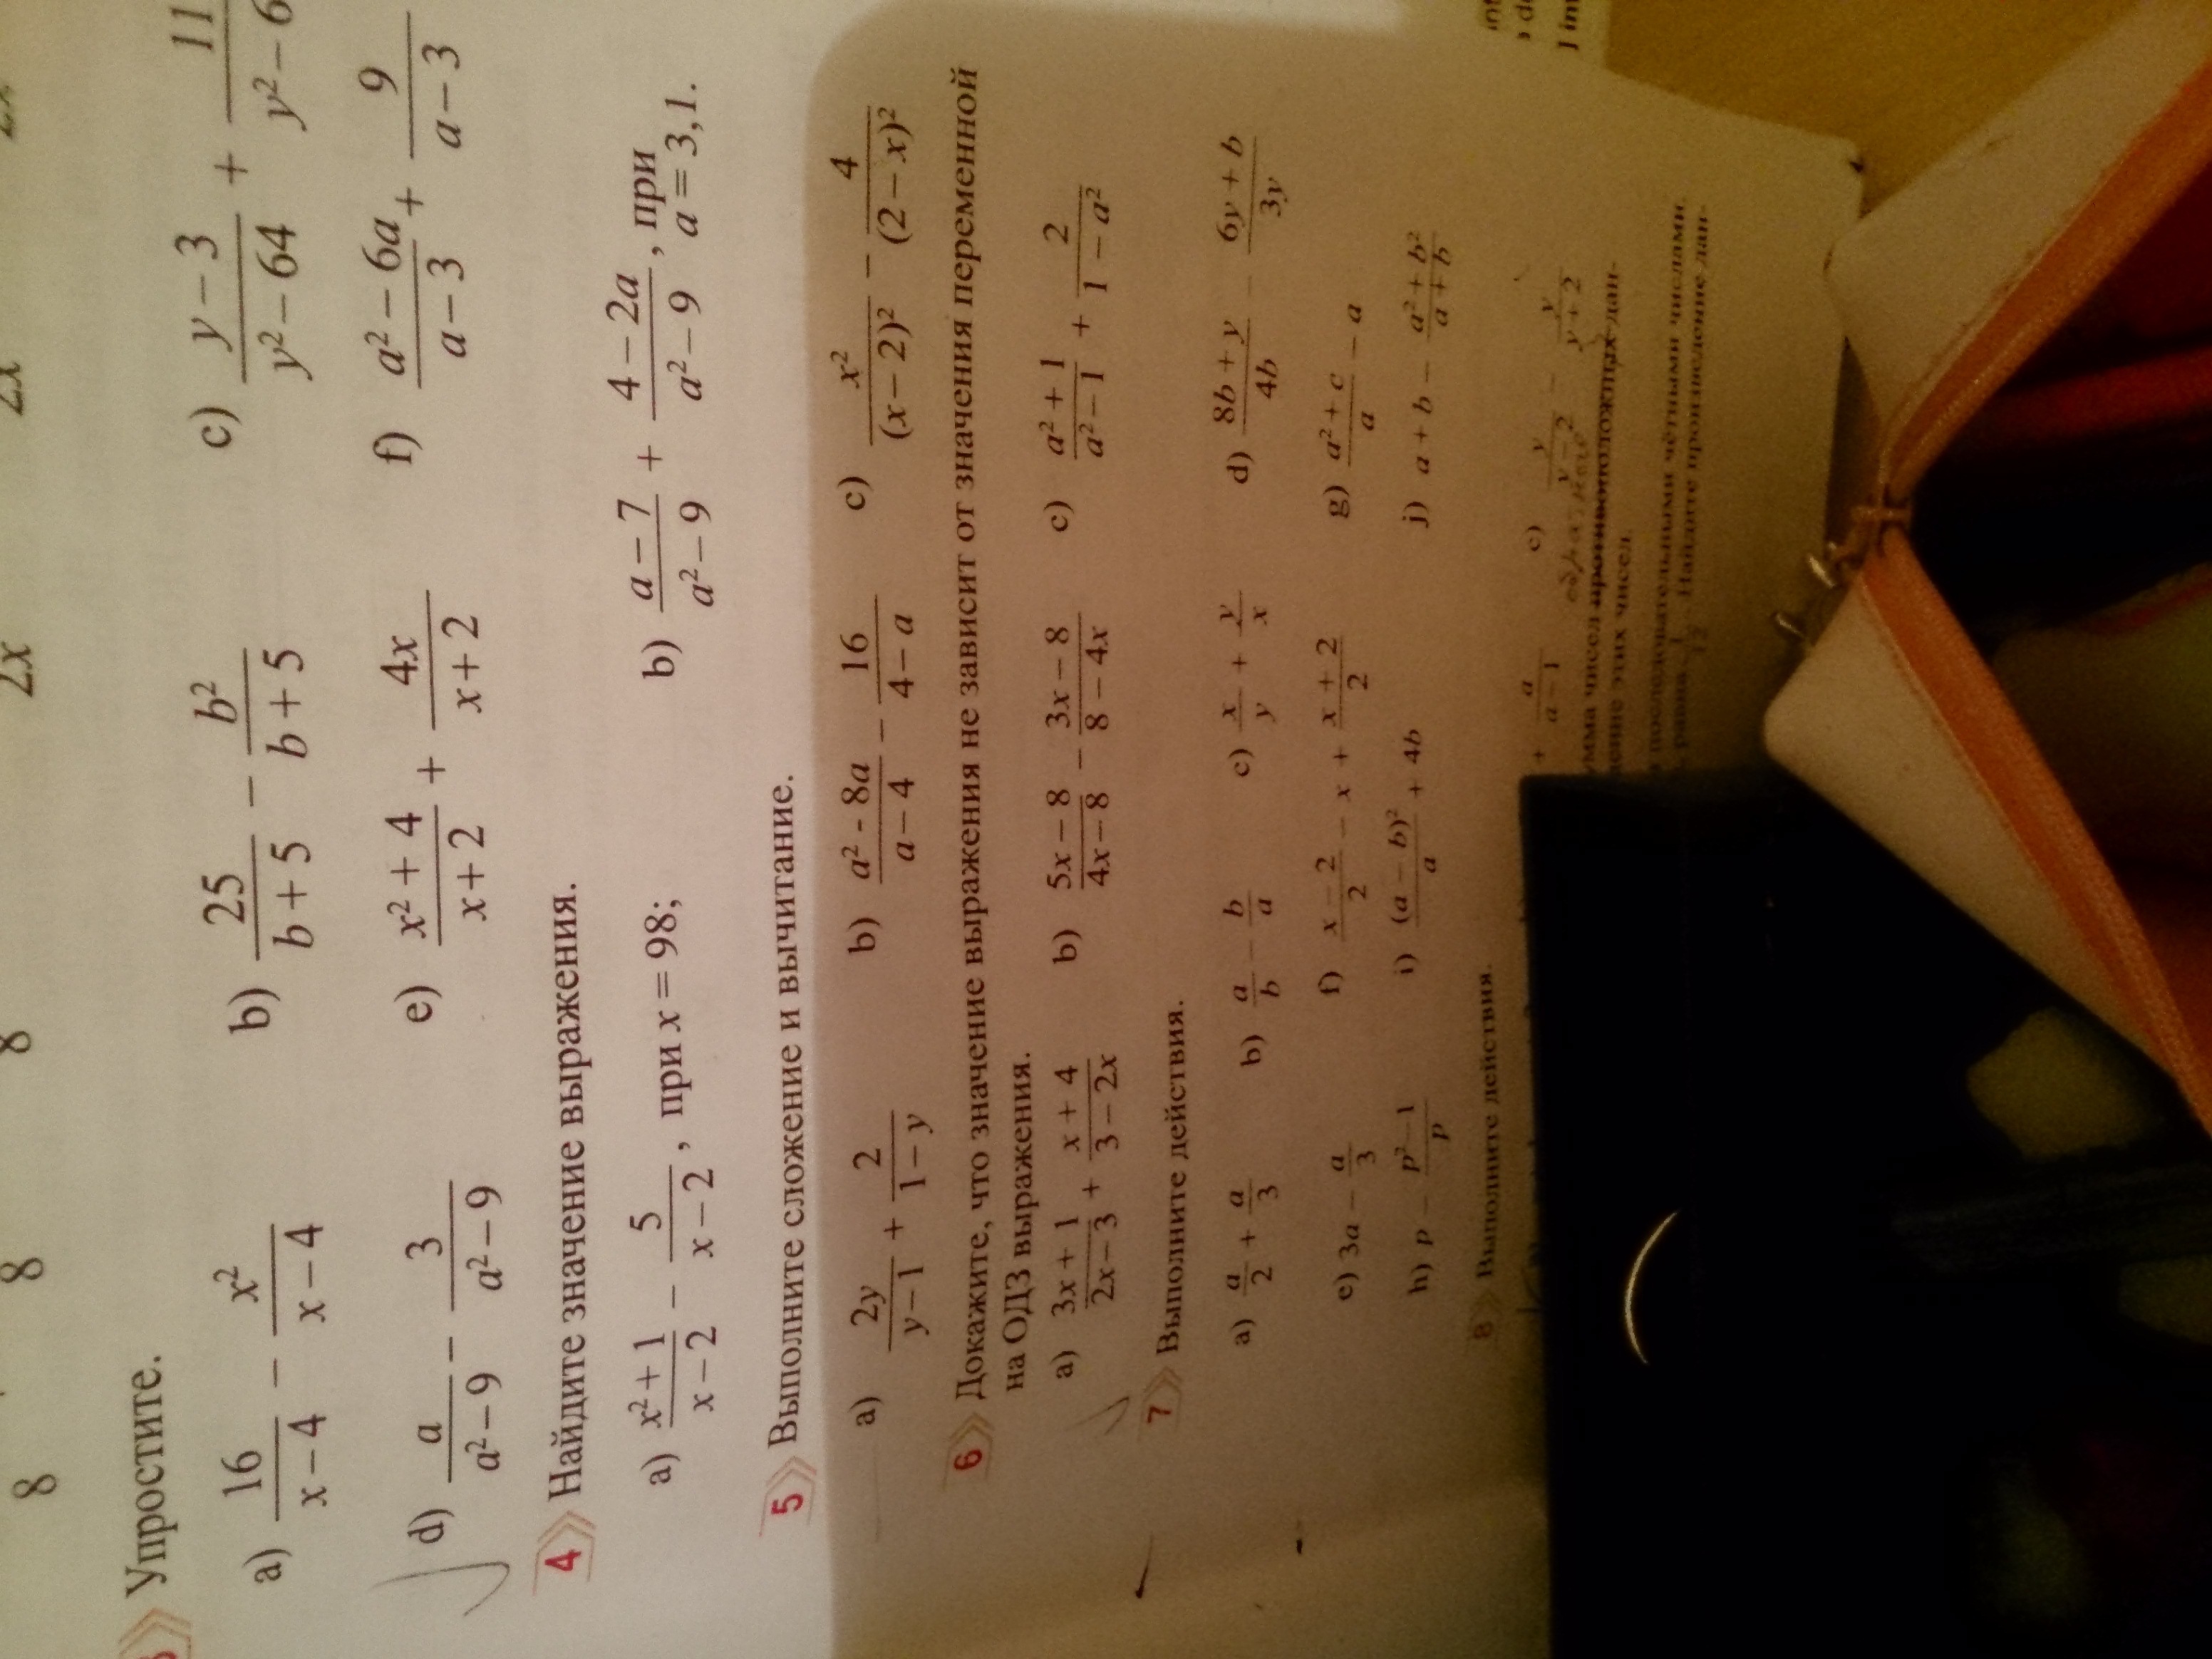 8 8 8 2x 2x 2x
Упростите.
a) 16/(x – 4) – x²/(x – 4) b) 25/(b + 5) – b²/(b + 5) c) (y – 3)/(y² – 64) + 11/(y² – 6
d) a/(a² – 9) – 3/(a² – 9) e) (x² + 4)/(x + 2) + 4x/(x + 2) f) (a² – 6a)/(a – 3) + 9/(a – 3)
4 Найдите значение выражения.
a) (x² + 1)/(x – 2) – 5/(x – 2), при x = 98; b) (a – 7)/(a² – 9) + (4 – 2a)/(a² – 9), при a = 3,1.
5 Выполните сложение и вычитание.
a) 2y/(y – 1) + 2/(1 – y) b) (a² - 8a)/(a – 4) – 16/(4 – a) c) x²/(x – 2)² – 4/(2 – x)²
6 Докажите, что значение выражения не зависит от значения переменной
на ОДЗ выражения.
a) (3x + 1)/(2x – 3) + (x + 4)/(3 – 2x) b) (5x – 8)/(4x – 8) – (3x – 8)/(8 – 4x) c) (a² + 1)/(a² – 1) + 2/(1 – a²)
7 Выполните действия.
a) a/2 + a/3 b) a/b – b/a c) x/y + y/x d) (8b + y)/4b – (6y + b)/3y
e) 3a – a/3 f) (x – 2)/2 – x + (x + 2)/2 g) (a² + c)/a – a
h) p – (p² – 1)/p i) (a – b)²/a + 4b j) a + b – (a² + b²)/(a + b)
8 Выполните действия.
+ a/(a – 1) c) y/(y – 2) – y/(y + 2)
умма чисел противоположных дан-
ение этих чисел.
последовательными чётными числами,
равна Найдите произведение дан-